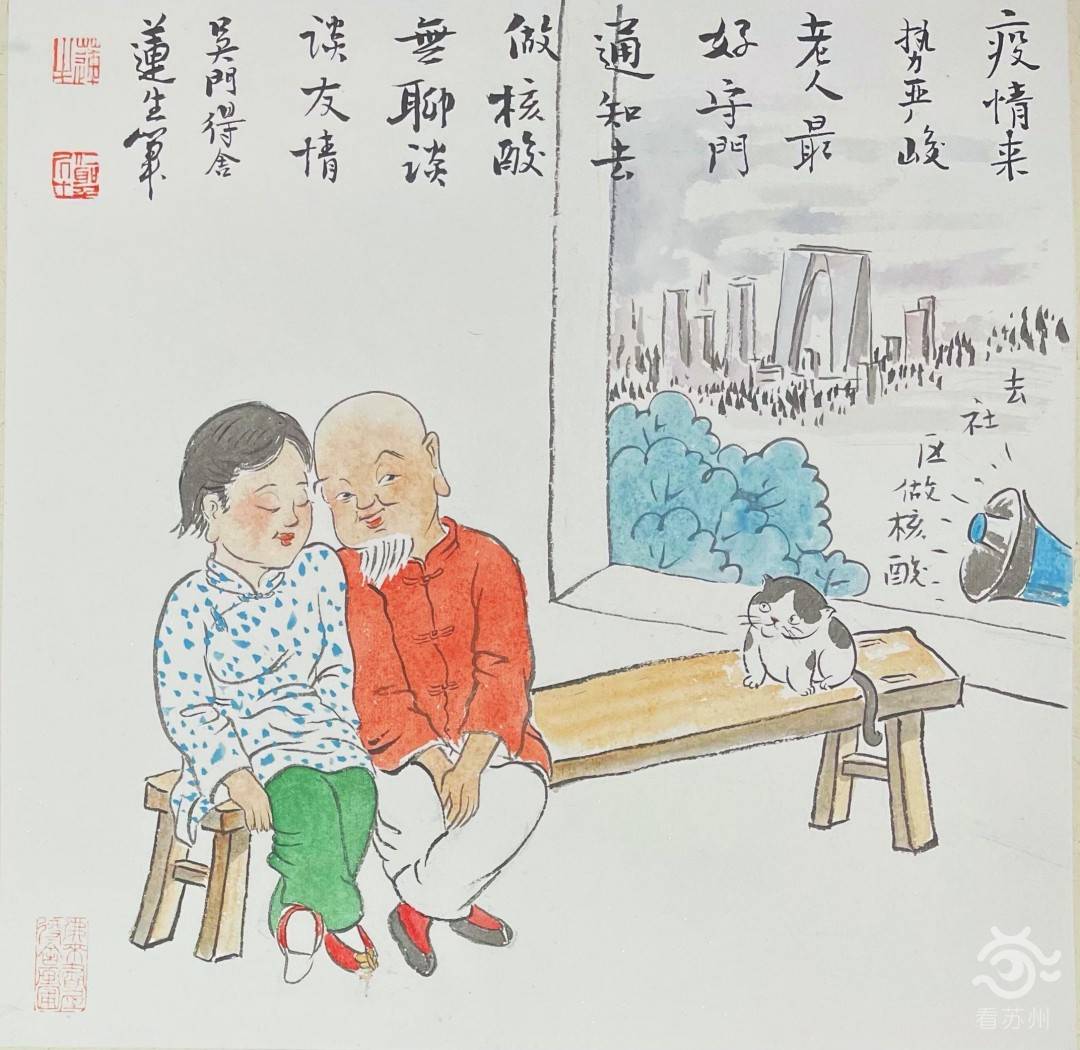 疫情来
势严峻
老人最
好守門
通知去
做核酸
無聊谈
谈友情
吴門得舍
蓮生筆
去社区做核酸
看苏州